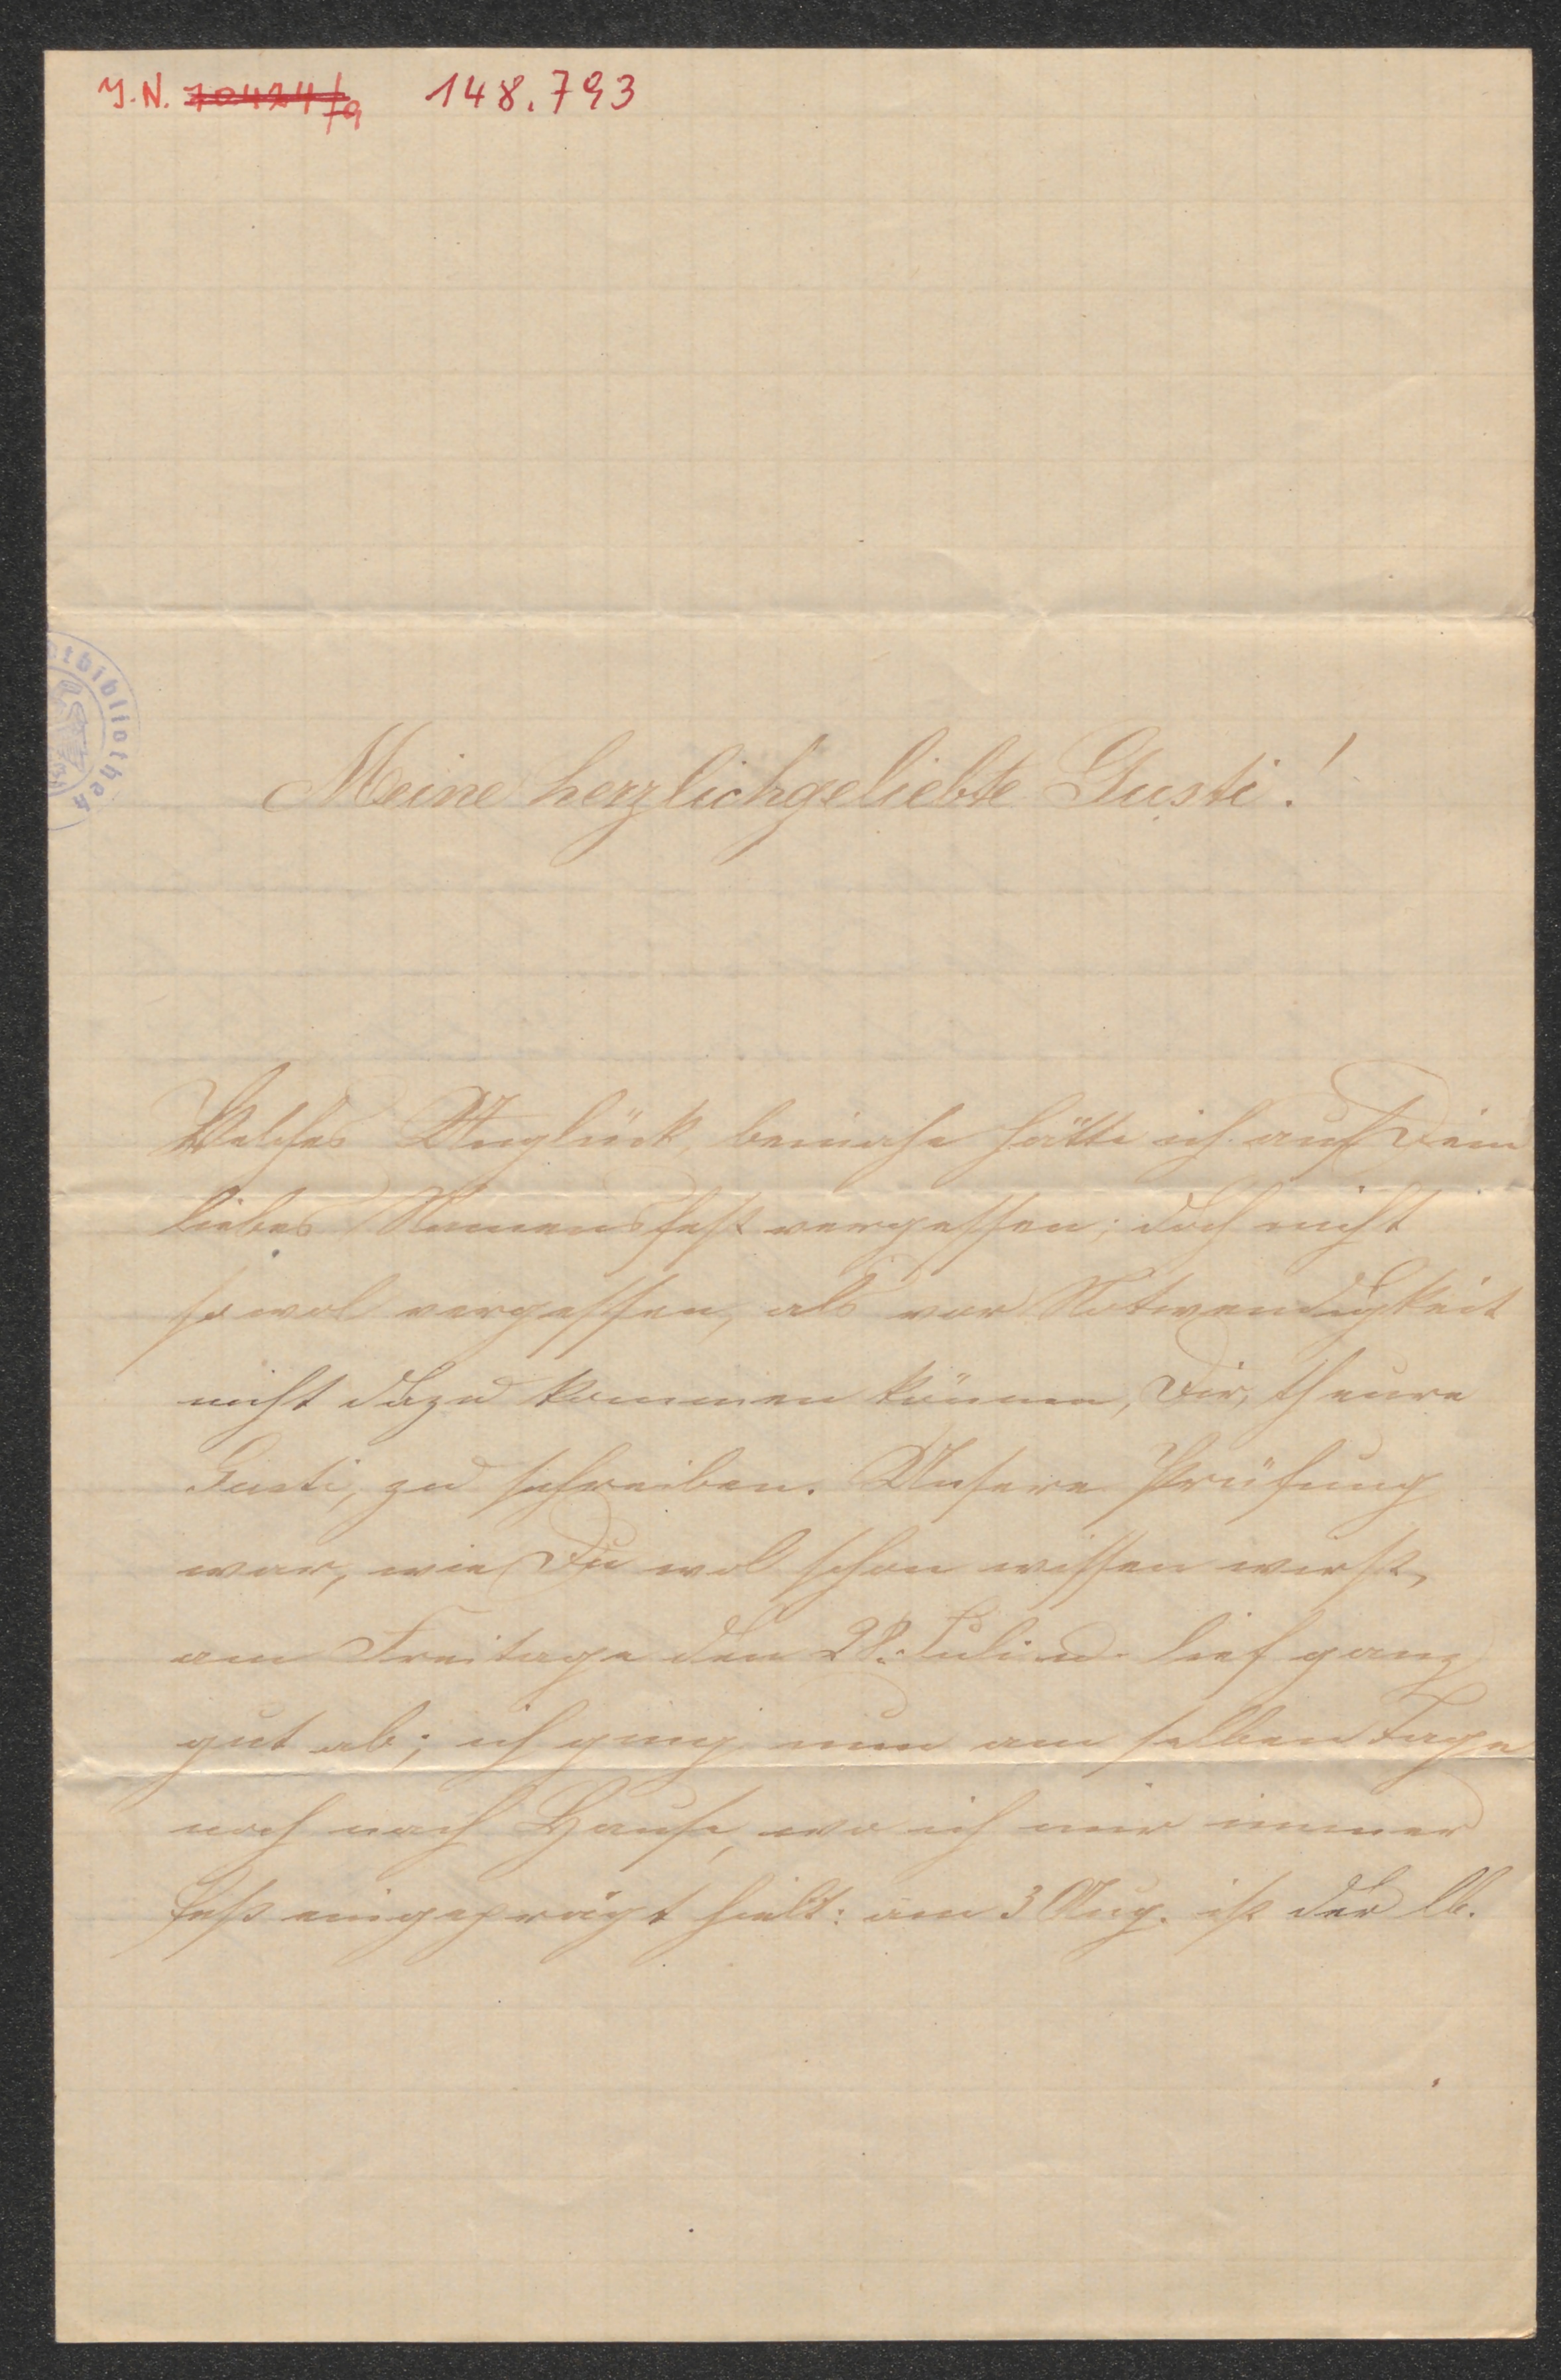 J.N. 70424/9 148.793
tbibliothek
Meine herzlichgeliebte Gusti!
Welches Unglück, beinahe hätte ich auf Dein
liebes Namensfest vergessen; doch nicht
sowol vergessen, als vor Notwendigkeit
nicht dazu kommen können, Dir, theure
Gusti, zu schreiben. Unsere Prüfung
war, wie Du wol schon wissen wirst,
am Freitage den 28. Juli u. lief ganz
gut ab; ich ging nun am selben Tage
noch nach Hause, wo ich mir immer
fest eingeprägt hielt: am 3 Aug. ist der lb.